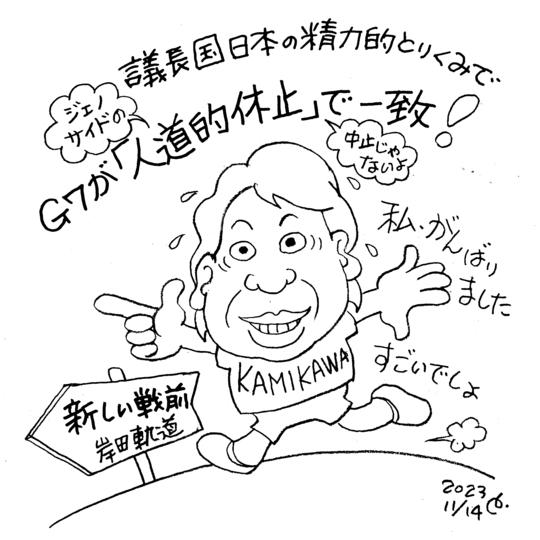 議長国日本の精力的とりくみで
ジェノ
サイドの
G7が「人道的休止」で一致!
中止じゃ
ないよ
私、がんばり
ました
すごいでしょ
KAMIKAWA
新しい戦前
岸田軌道
2023
11/14